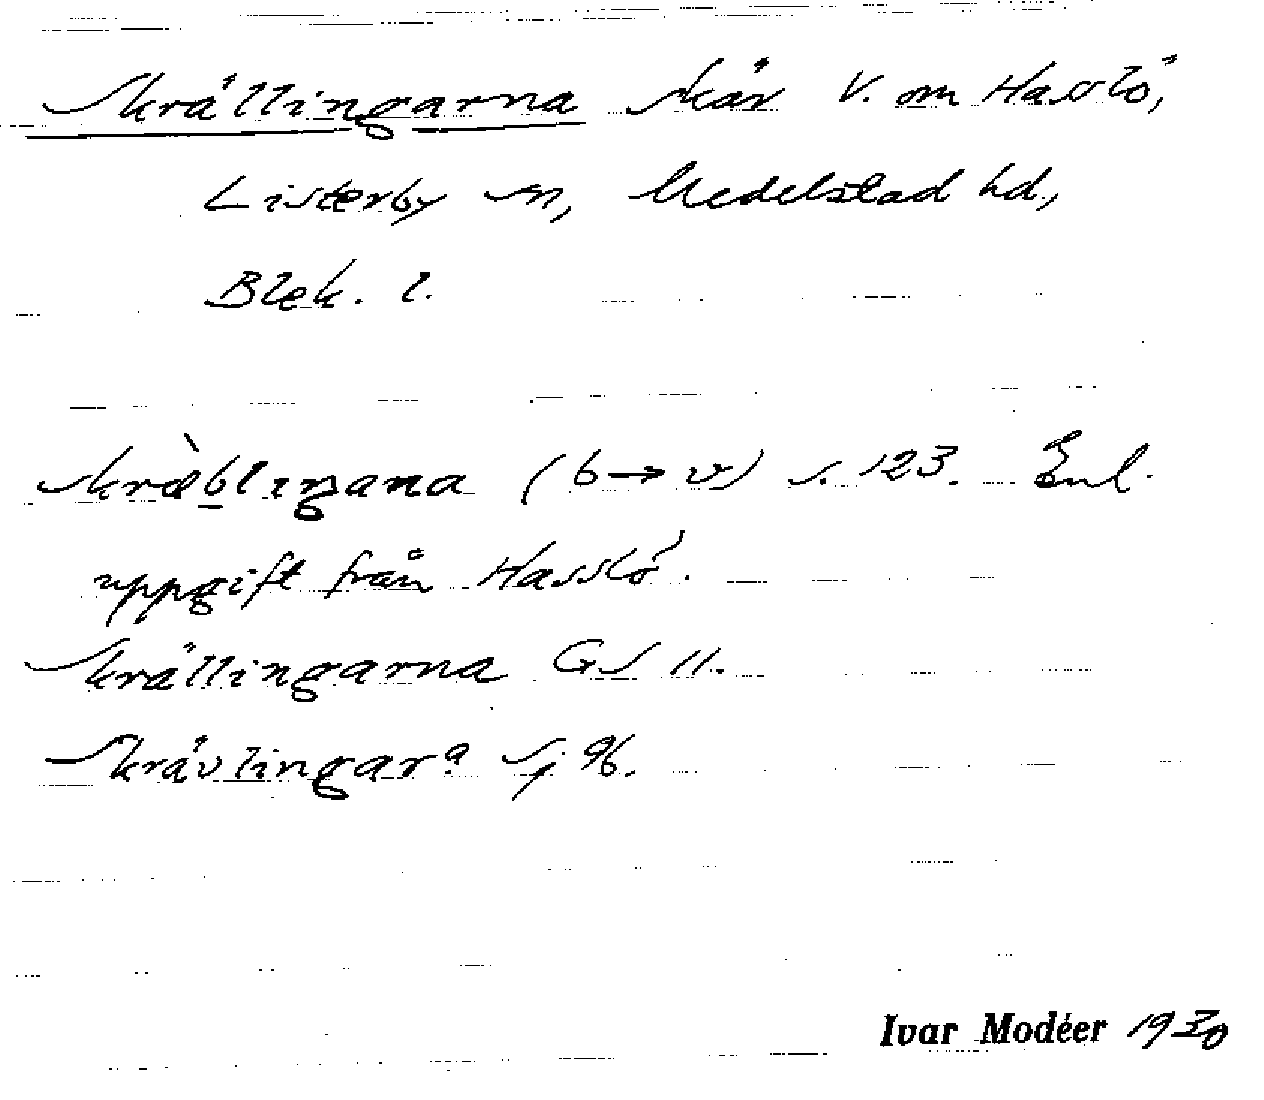 Skrällingarna skär V. om Hasslö,
Listerby sn, Medelstad hd,
Blek. l.
skræ̀blingana (b→v) s. 123. Enl.
uppgift från Hasslö.
Skrällingarna GS 11.
Skrävlingara Sj 96.
Ivar Modéer 1930